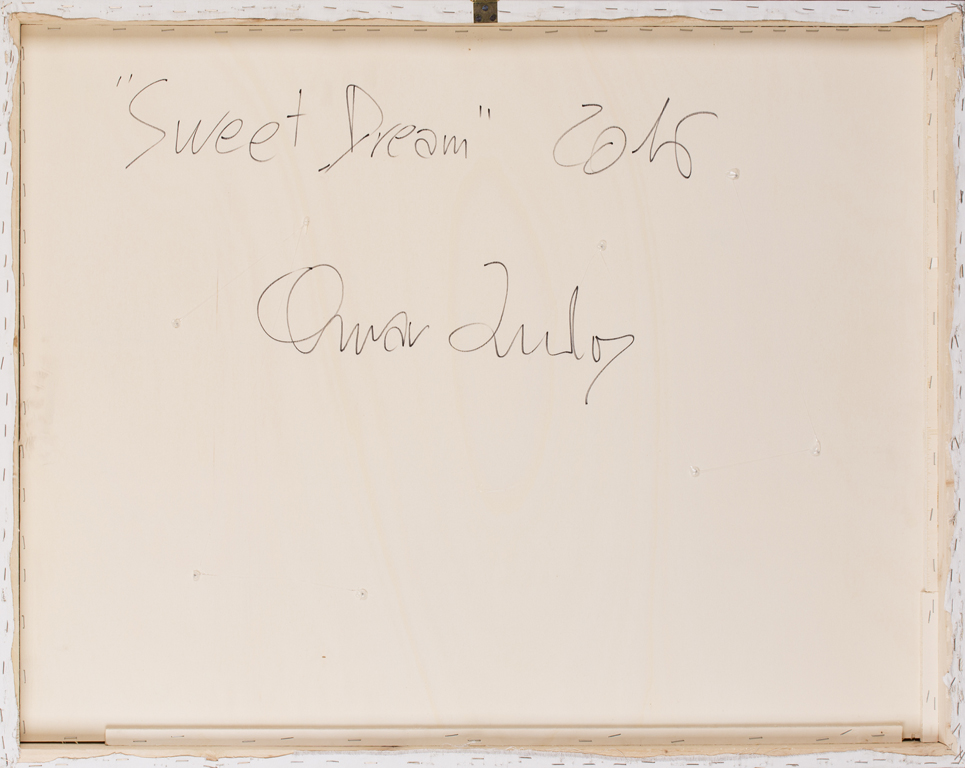 "Sweet Dream" 2016
Omar